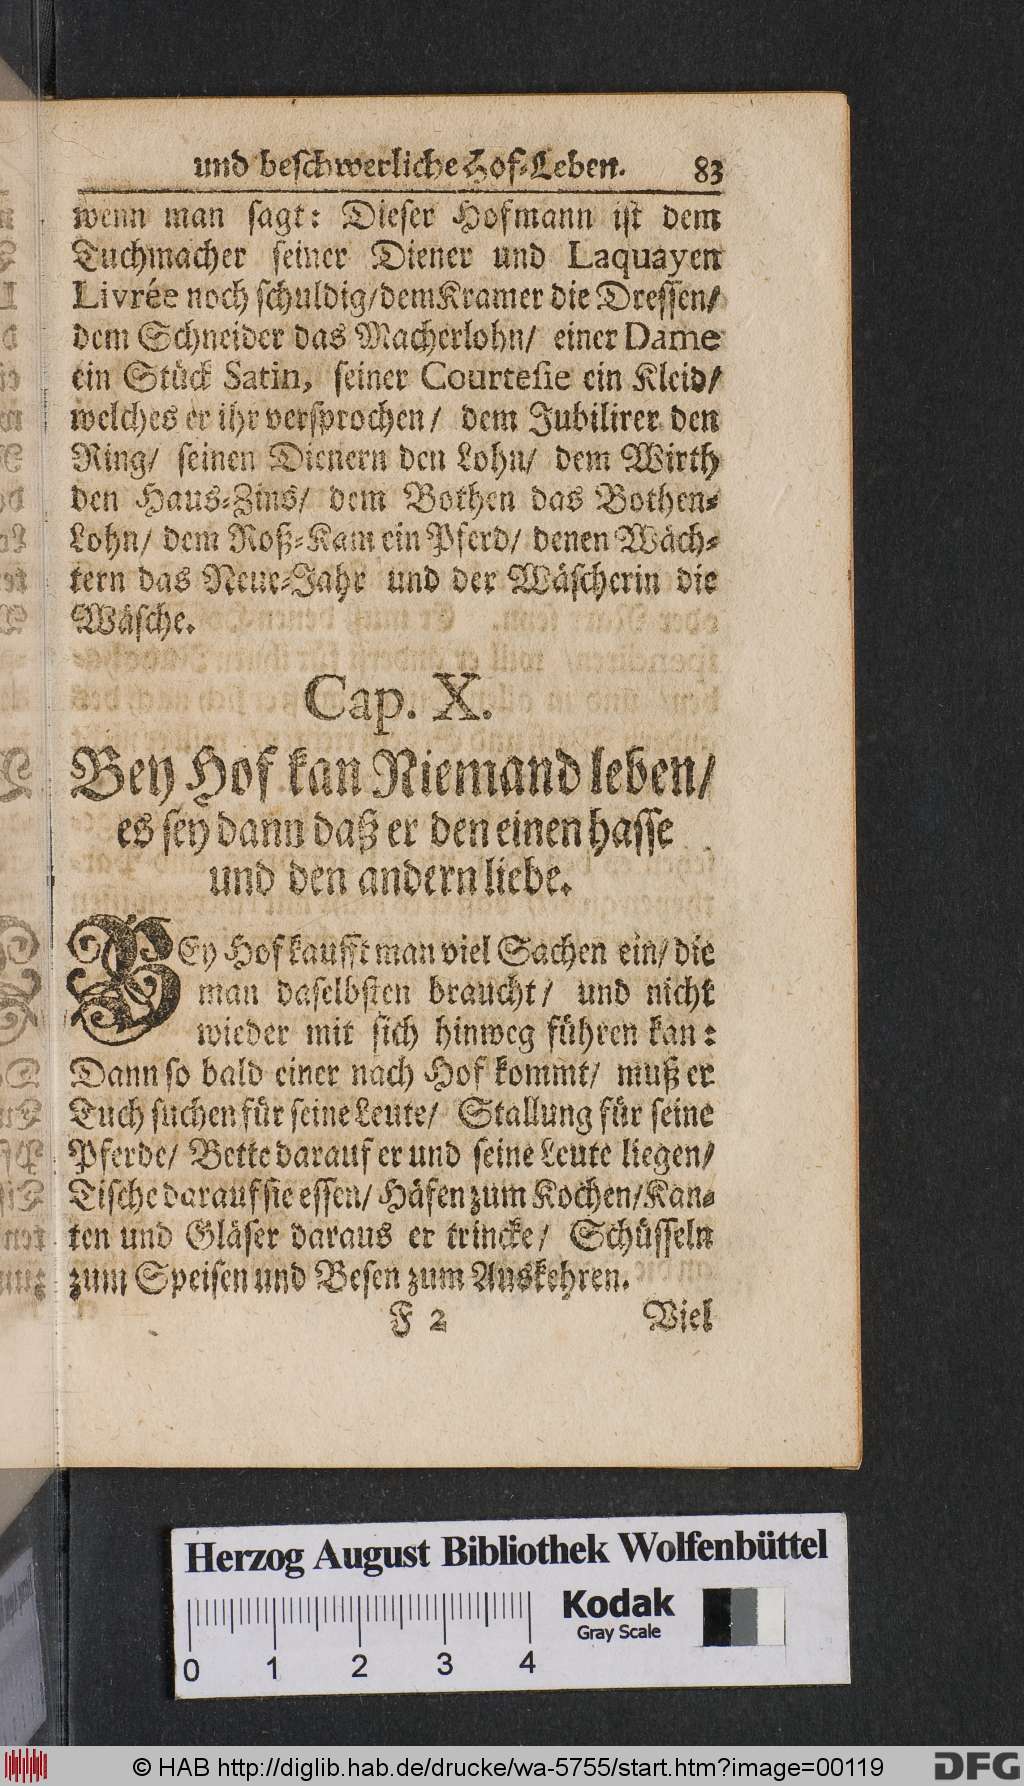 und beſchwerliche Hof-Leben. 83
wenn man ſagt: Dieſer Hofmann iſt dem
Tuchmacher ſeiner Diener und Laquayen
Livrée noch ſchuldig/ dem Kramer die Dreſſen/
dem Schneider das Macherlohn/ einer Dame
ein Stück Satin, ſeiner Courteſie ein Kleid/
welches er ihr verſprochen/ dem Jubilirer den
Ring/ ſeinen Dienern den Lohn/ dem Wirth
den Haus-Zins/ dem Bothen das Bothen-
Lohn/ dem Roß-Kam ein Pferd/ denen Wäch-
tern das Neue-Jahr und der Wäſcherin die
Wäſche.
Cap. X.
Bey Hof kan Niemand leben/
es ſey dann daß er den einen haſſe
und den andern liebe.
BEy Hof kaufft man viel Sachen ein/ die
man daſelbſten braucht/ und nicht
wieder mit ſich hinweg führen kan:
Dann ſo bald einer nach Hof kommt/ muß er
Tuch ſuchen für ſeine Leute/ Stallung für ſeine
Pferde/ Bette darauf er und ſeine Leute liegen/
Tiſche darauf ſie eſſen/ Häfen zum Kochen/ Kan-
ten und Gläſer daraus er trincke/ Schüſſeln
zum Speiſen und Beſen zum Auskehren.
F 2 Viel
Herzog August Bibliothek Wolfenbüttel
Kodak
Gray Scale
0 1 2 3 4
© HAB http://diglib.hab.de/drucke/wa-5755/start.htm?image=00119
DFG